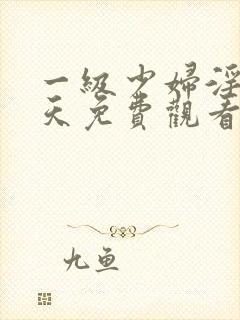 一級少婦淫
天免費觀看
九鱼